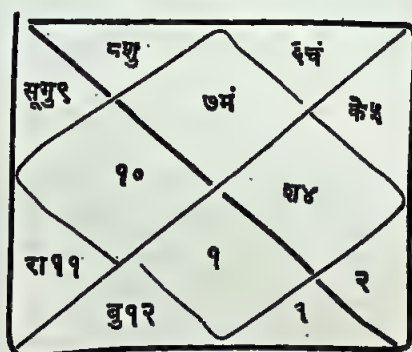 ८शु ६चं
सूगु९ ७मं के५
१० श४
रा११ १ २
बु१२ १